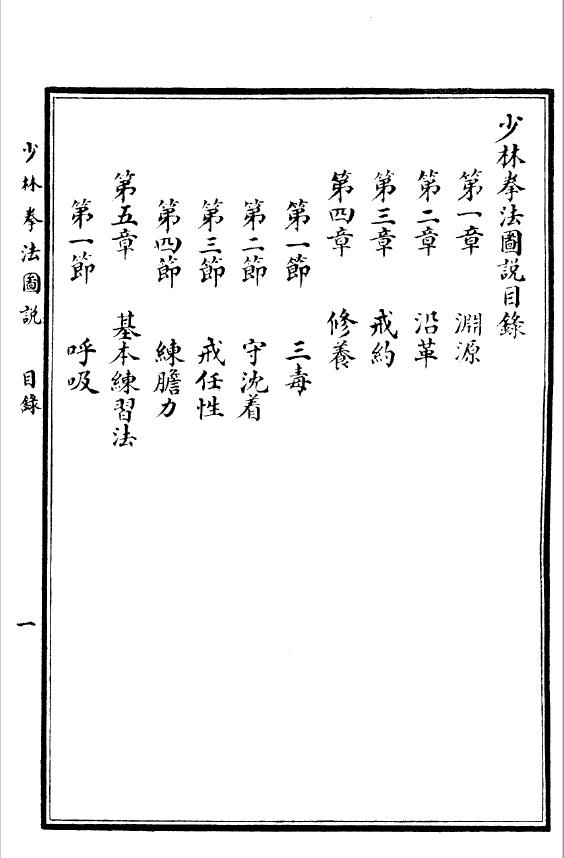 少林拳法圖説目錄
第一章　淵源
第二章　沿革
第三章　戒約
第四章　修養
第一節　三毒
第二節　守沈着
第三節　戒任性
第四節　練膽力
第五章　基本練習法
第一節　呼吸
少林拳法圖説　目錄
一